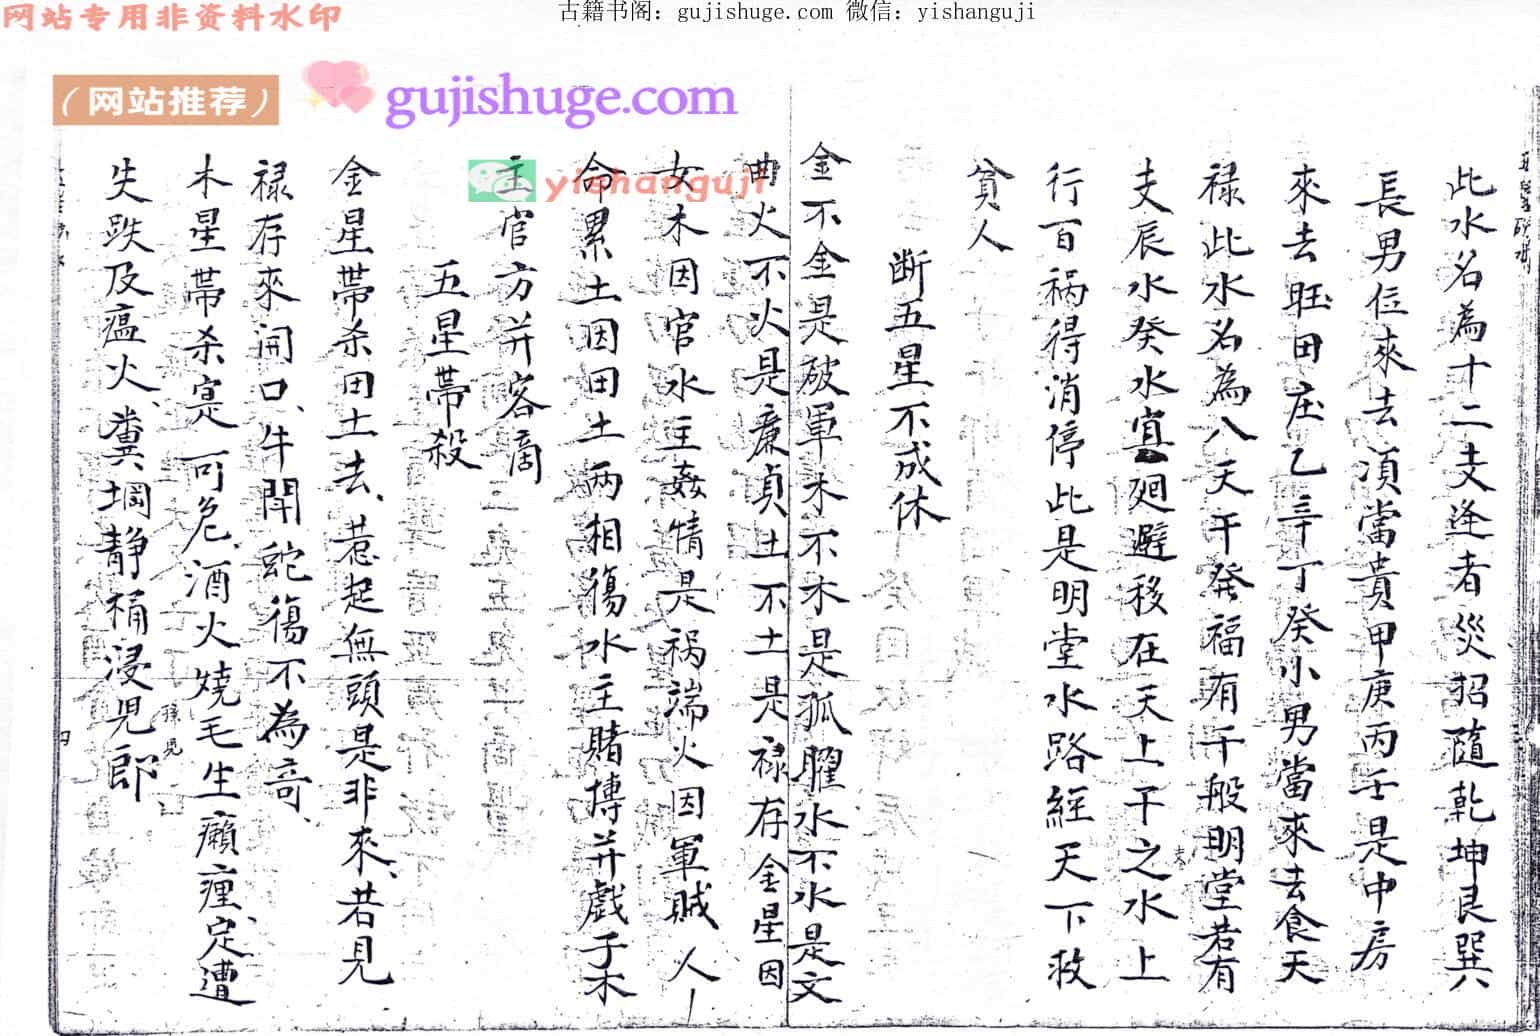 网站专用非资料水印
古籍书阁：gujishuge.com 微信：yishanguji
（网站推荐）
gujishuge.com
yishanguji
此水名為十二支逢者災招隨乾坤艮巽
長男位來去湏當貴甲庚丙壬是中房
來去旺田庄乙辛丁癸小男當來去食天
禄此水名為八天干發福有千般明堂若有
支辰水癸水宜廻避移在天上干之水上
支
行百祸得消停此是明堂水路經天下救
貧人
断五星不成休
金不金是破軍木不木是孤臞水不水是文
曲火不火是廉貞土不土是禄存金星因
女木因官水主姦情是祸端火因軍賊人
命累土因田土两相傷水主賭博并戲子木
主官方并客商
五星帶殺
金星帶杀田土去、惹起無頭是非來、若見
禄存來開口、牛開蛇傷不為奇、
木星帶杀寔可危、酒火燒毛生癩瘇、定遭
失跌及瘟火、糞堈靜桶浸児郎
孫児
四